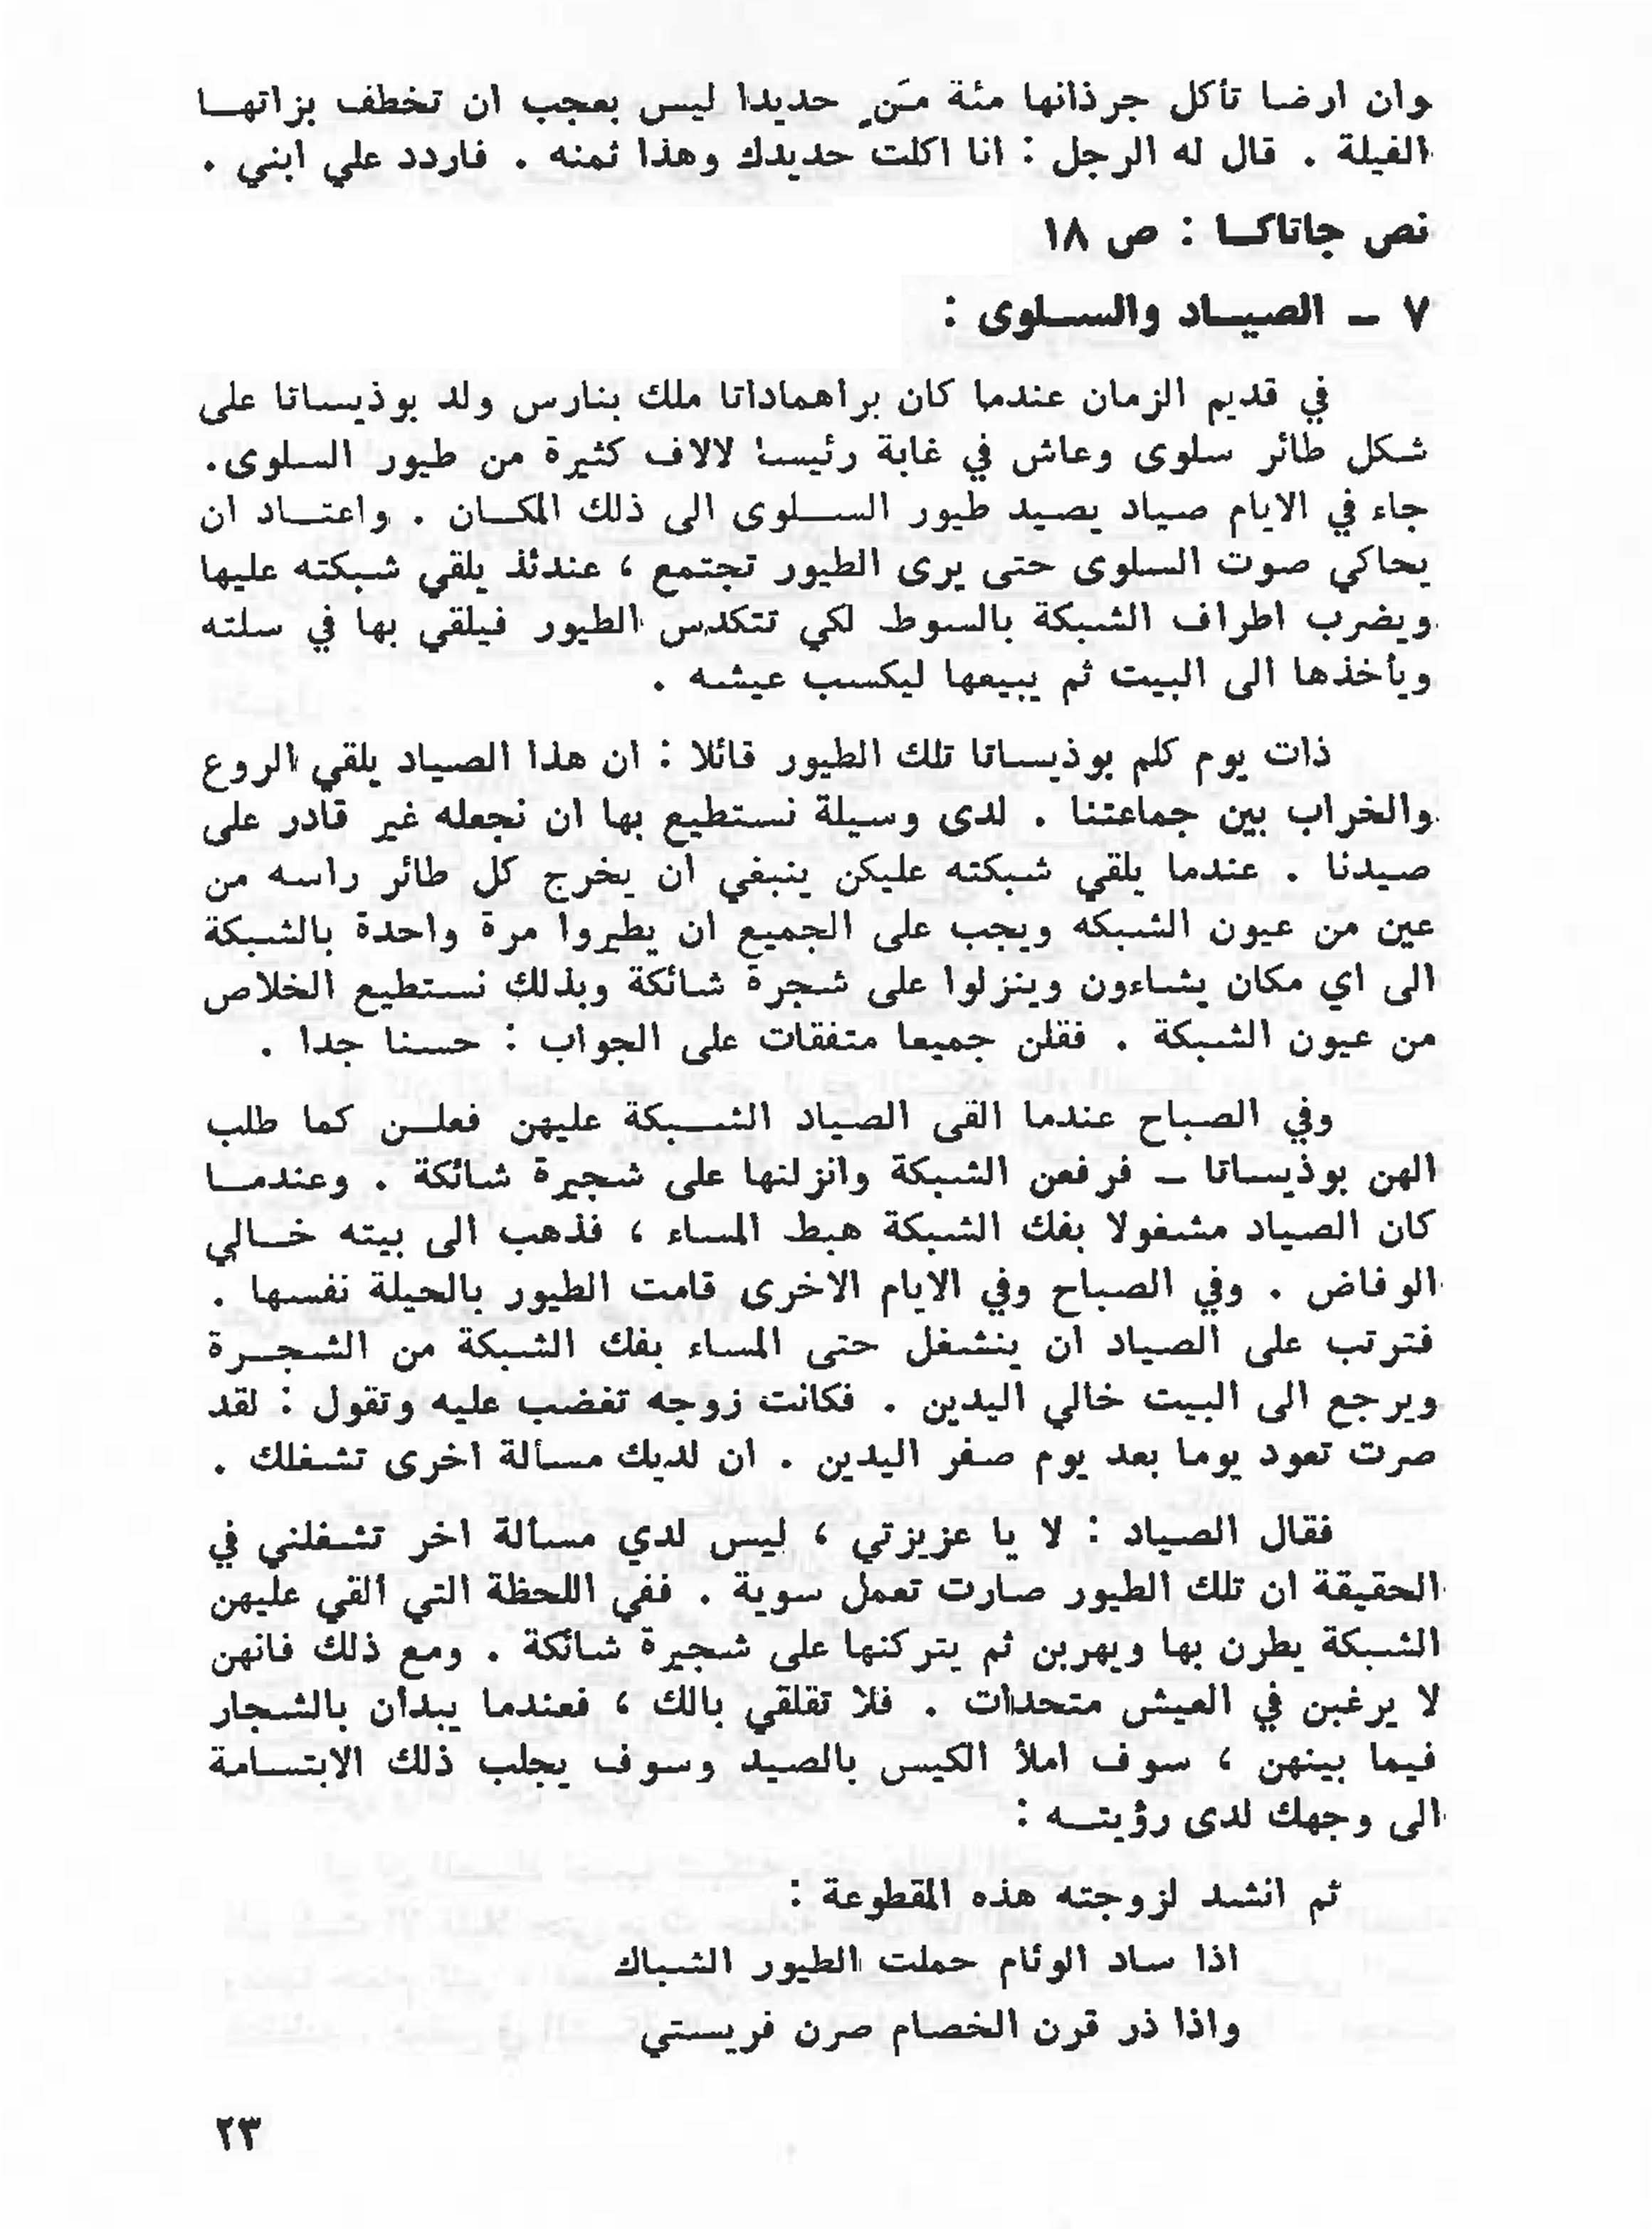 وان ارضا تأكل جرذانها مئة مَنٍ حديدا ليس بعجب ان تخطف بزاتهـا
الفيلة . قال له الرجل : انا اكلت حديدك وهذا ثمنه . فاردد علي ابني .
نص جاتاكـا : ص ١٨
٧ ـ الصيـاد والسـلوى :
في قديم الزمان عندما كان براهماداتا ملك بنارس ولد بوذيساتا على
شكل طائر سلوى وعاش في غابة رئيسا لالاف كثيرة من طيور السلوى.
جاء في الايام صياد يصيد طيور السـلوى الى ذلك المكـان . واعتـاد ان
يحاكي صوت السلوى حتى يرى الطيور تجتمع ، عندئذ يلقي شبكته عليها
ويضرب اطراف الشبكة بالسوط لكي تتكدس الطيور فيلقي بها في سلته
ويأخذها الى البيت ثم يبيعها ليكسب عيشه .
ذات يوم كلم بوذيساتا تلك الطيور قائلا : ان هذا الصياد يلقي الروع
والخراب بين جماعتنا . لدى وسيلة نستطيع بها ان نجعله غير قادر على
صيدنا . عندما يلقي شبكته عليكن ينبغي ان يخرج كل طائر راسه من
عين من عيون الشبكه ويجب على الجميع ان يطيروا مرة واحدة بالشبكة
الى اي مكان يشاءون وينزلوا على شجرة شائكة وبذلك نستطيع الخلاص
من عيون الشبكة . فقلن جميعا متفقات على الجواب : حسنا جدا .
وفي الصباح عندما القى الصياد الشـبكة عليهن فعلـن كما طلب
الهن بوذيساتا ـ فرفعن الشبكة وانزلنها على شجيرة شائكة . وعندمـا
كان الصياد مشغولا بفك الشبكة هبط المساء ، فذهب الى بيته خـالي
الوفاض . وفي الصباح وفي الايام الاخرى قامت الطيور بالحيلة نفسها .
فترتب على الصياد ان ينشغل حتى المساء بفك الشبكة من الشـجـرة
ويرجع الى البيت خالي اليدين . فكانت زوجه تغضب عليه وتقول : لقد
صرت تعود يوما بعد يوم صفر اليدين . ان لديك مسألة اخرى تشغلك .
فقال الصياد : لا يا عزيزتي ، ليس لدي مسألة اخر تشغلني في
الحقيقة ان تلك الطيور صارت تعمل سوية . ففي اللحظة التي ألقي عليهن
الشبكة يطرن بها ويهربن ثم يتركنها على شجيرة شائكة . ومع ذلك فانهن
لا يرغبن في العيش متحدات . فلا تقلقي بالك ، فعندما يبدأن بالشجار
فيما بينهن ، سوف املأ الكيس بالصيد وسوف يجلب ذلك الابتسامة
الى وجهك لدى رؤيتـه :
ثم انشد لزوجته هذه المقطوعة :
اذا ساد الوئام حملت الطيور الشباك
واذا ذر قرن الخصام صرن فريستي
٢٣